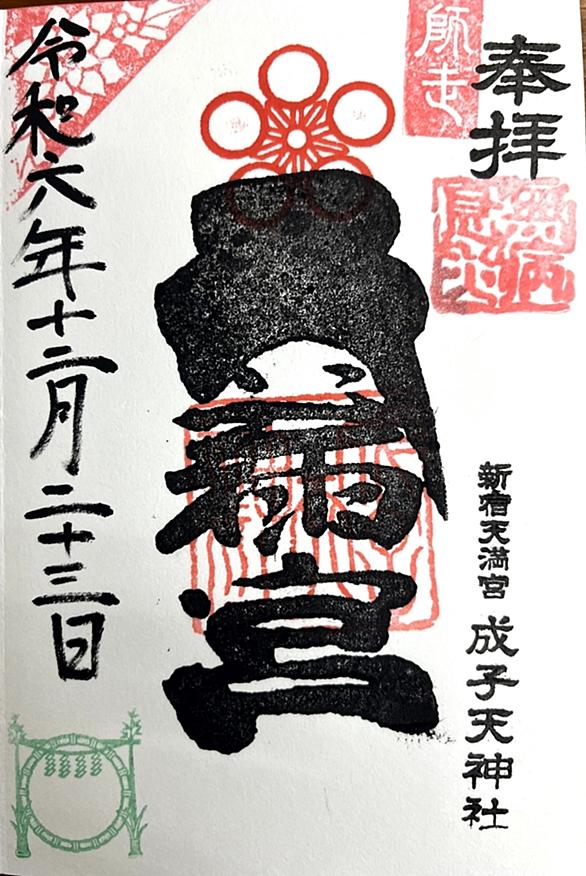 奉拝
師走
無病
息災
新宿天満宮 成子天神社
天満宮
令和六年十二月二十三日